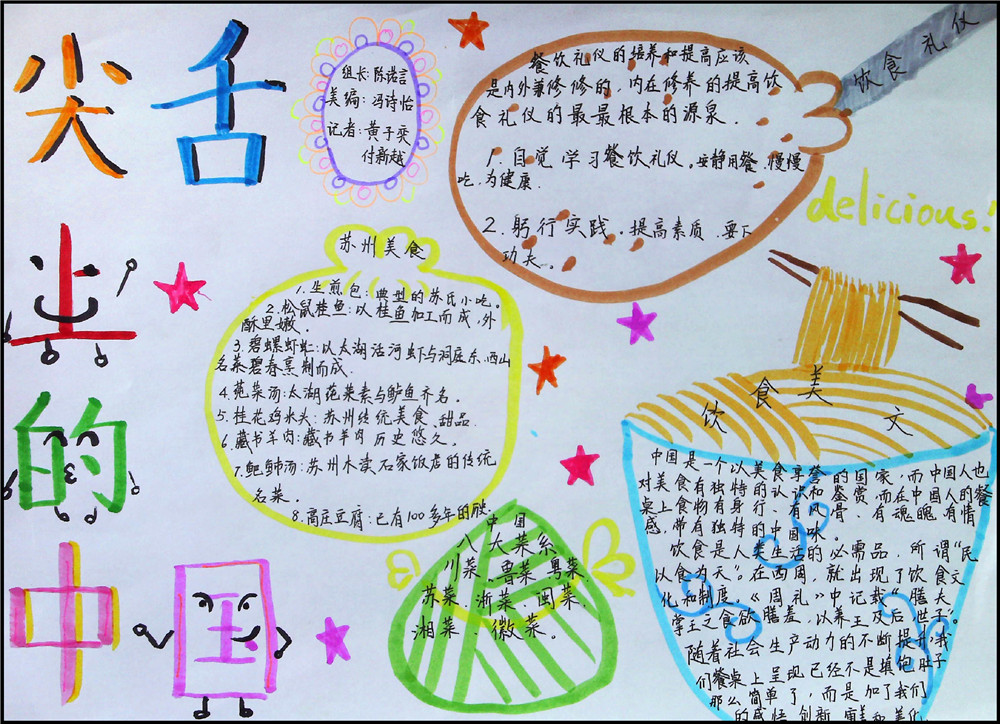 舌尖上的中国
组长：陈诺言
美编：冯诗怡
记者：黄子奕
付新越
饮食礼仪
餐饮礼仪的培养和提高应该
是内外兼修修的，内在修养的提高饮
食礼仪的最最根本的源泉．
1．自觉学习餐饮礼仪。安静用餐．慢慢
吃，为健康．
2．躬行实践。提高素质．要下
功夫。
delicious!
苏州美食
1．生煎包：典型的苏氏小吃。
2．松鼠桂鱼：以桂鱼加工而成，外
酥里嫩．
3．碧螺虾虹：以太湖活河虾与洞庭东、西山
名茶碧春烹制而成．
4．莼菜汤：太湖莼菜素与鲈鱼齐名。
5．桂花鸡水头：苏州传统美食．甜品．
6．藏书羊肉：藏书羊肉 历史悠久。
7．鲃鲏汤：苏州木渎石家饭店的传统
名菜。
8．高庄豆腐：已有100多年的
中国
八大菜系
川菜、鲁菜、粤菜、
苏菜、浙菜、闽菜、
湘菜、徽菜。
饮食美文
中国是一个以美食享誉的国家，而中国人也
对美食有独特的认识和鉴赏，而在中国人的餐
桌上食物有身行、有风骨、有魂魄、有情
感，带有独特的中国味。
饮食是人类生活的必需品，所谓“民
以食为天”。在西周，就出现了饮食文
化和制度。《周礼》中记载“膳夫
掌王之食饮膳羞，以养王及后、世子”。
随着社会生产动力的不断提升，我
们餐桌上呈现已经不是填饱肚子
那么简单了，而是加了我们
的感悟、创新、审美和美化